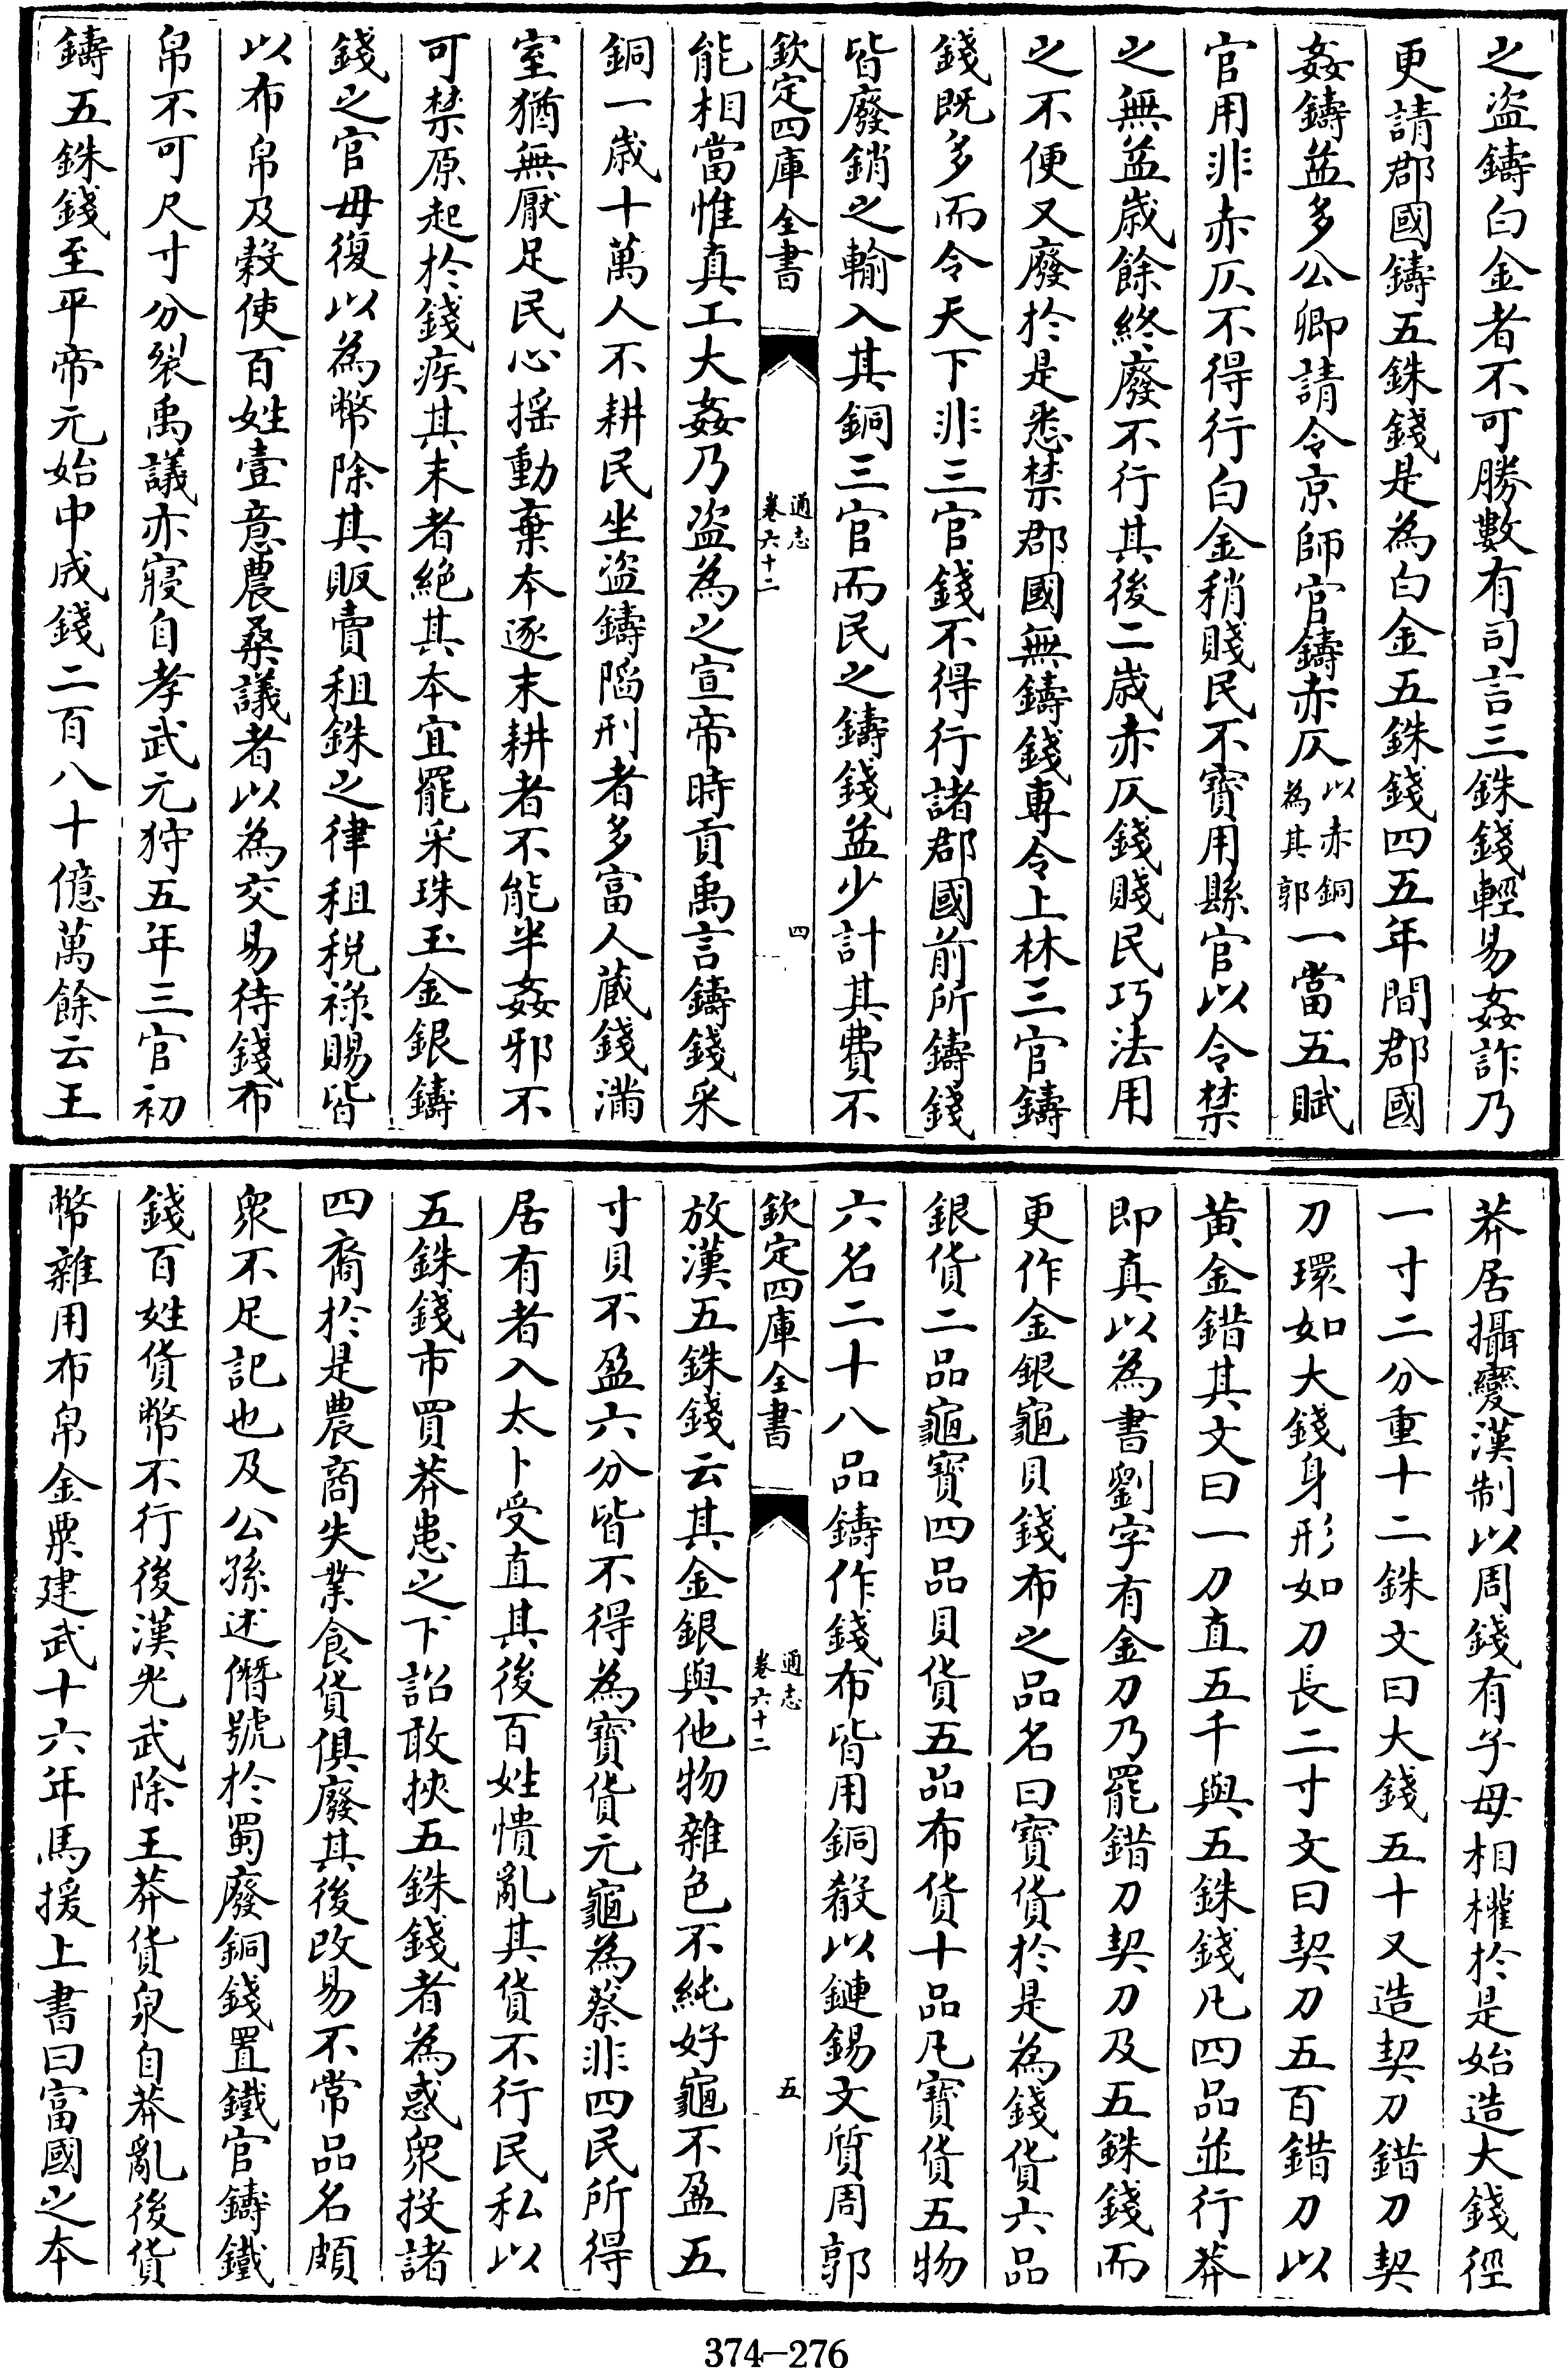 之盗鑄白金者不可勝數有司言三銖錢輕易姦詐乃
更請郡國鑄五銖錢是為白金五銖錢四五年間郡國
姦鑄益多公卿請令京師官鑄赤仄以赤銅為其郭一當五賦
官用非赤仄不得行白金稍賤民不寳用縣官以令禁
之無益歳餘終廢不行其後二歳赤仄錢賤民巧法用
之不便又廢於是悉禁郡國無鑄錢專令上林三官鑄
錢既多而令天下非三官錢不得行諸郡國前所鑄錢
皆廢銷之輸入其銅三官而民之鑄錢益少計其費不
欽定四庫全書
通志
卷六十二
四
能相當惟真工大姦乃盗為之宣帝時貢禹言鑄錢采
銅一歳十萬人不耕民坐盗鑄陷刑者多富人藏錢滿
室猶無厭足民心揺動棄本逐末耕者不能半姦邪不
可禁原起於錢疾其末者絶其本宜罷采珠玉金銀鑄
錢之官毋復以為幣除其販賣租銖之律租税祿賜皆
以布帛及穀使百姓壹意農桑議者以為交易待錢布
帛不可尺寸分裂禹議亦寢自孝武元狩五年三官初
鑄五銖錢至平帝元始中成錢二百八十億萬餘云王
莽居攝變漢制以周錢有子母相權於是始造大錢徑
一寸二分重十二銖文曰大錢五十又造契刀錯刀契
刀環如大錢身形如刀長二寸文曰契刀五百錯刀以
黄金錯其文曰一刀直五千與五銖錢凡四品並行莽
即真以為書劉字有金刀乃罷錯刀契刀及五銖錢而
更作金銀龜貝錢布之品名曰寳貨於是為錢貨六品
銀貨二品龜寳四品貝貨五品布貨十品凡寳貨五物
六名二十八品鑄作錢布皆用銅殽以鏈錫文質周郭
欽定四庫全書
通志
卷六十二
五
放漢五銖錢云其金銀與他物雜色不純好龜不盈五
寸貝不盈六分皆不得為寳貨元龜為蔡非四民所得
居有者入太卜受直其後百姓憒亂其貨不行民私以
五銖錢市買莽患之下詔敢挾五銖錢者為惑衆投諸
四裔於是農商失業食貨俱廢其後改易不常品名頗
衆不足記也及公孫述僭號於蜀廢銅錢置鐵官鑄鐵
錢百姓貨幣不行後漢光武除王莽貨泉自莽亂後貨
幣雜用布帛金粟建武十六年馬援上書曰富國之本
374-276